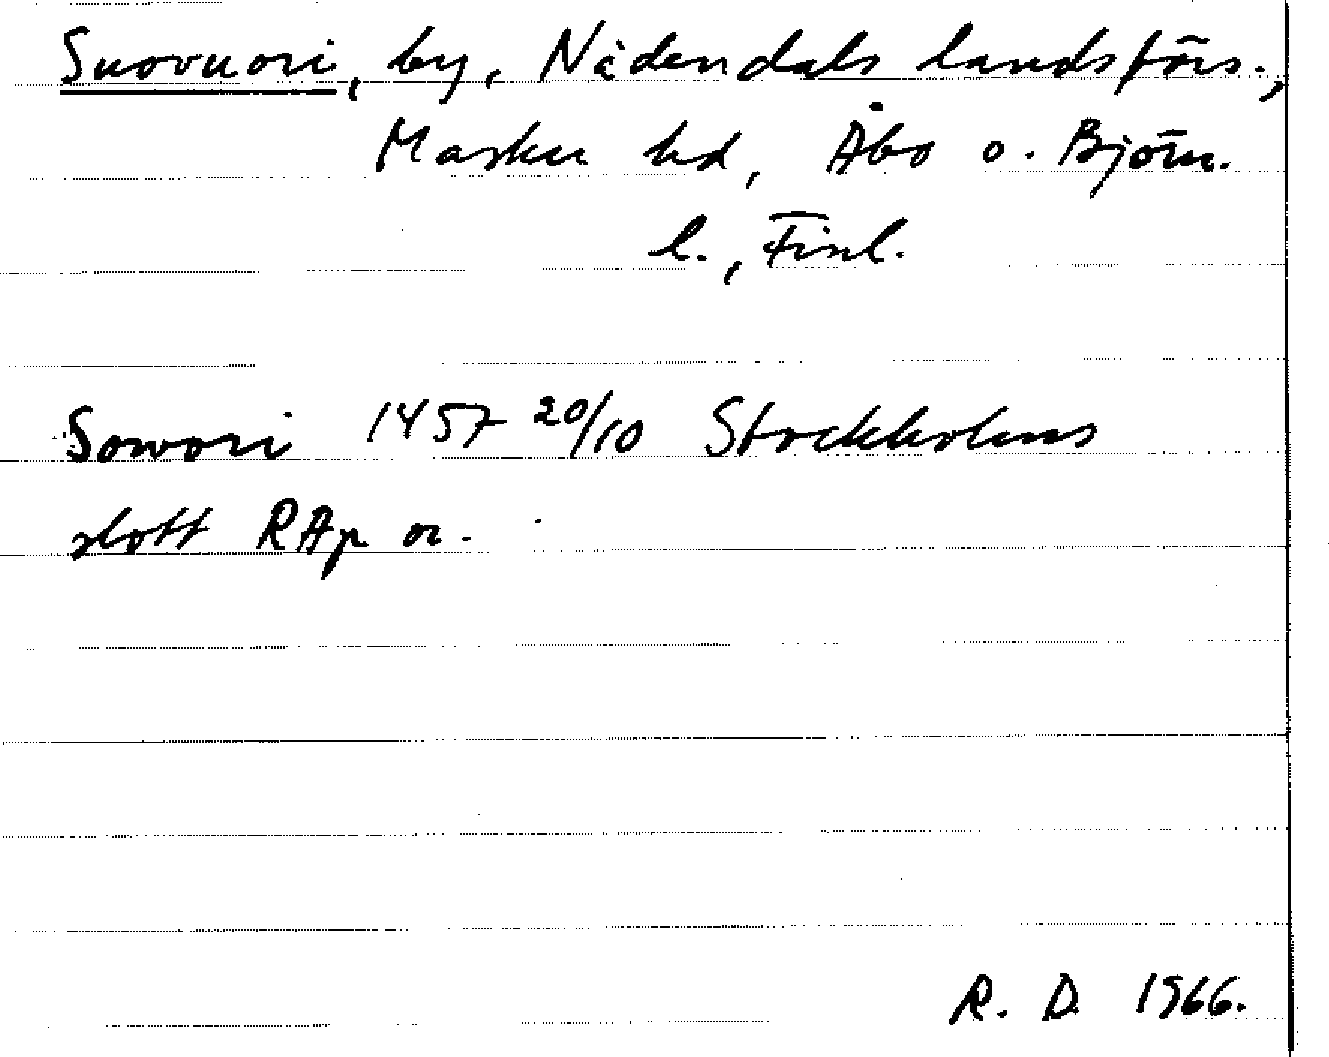 Suovuori, by, Nådendals landsförs.,
Masku hd, Åbo o. Björn.
l., Finl.
Sowori 1457 20/10 Stockholms
slott RAp or.
R. D. 1966.